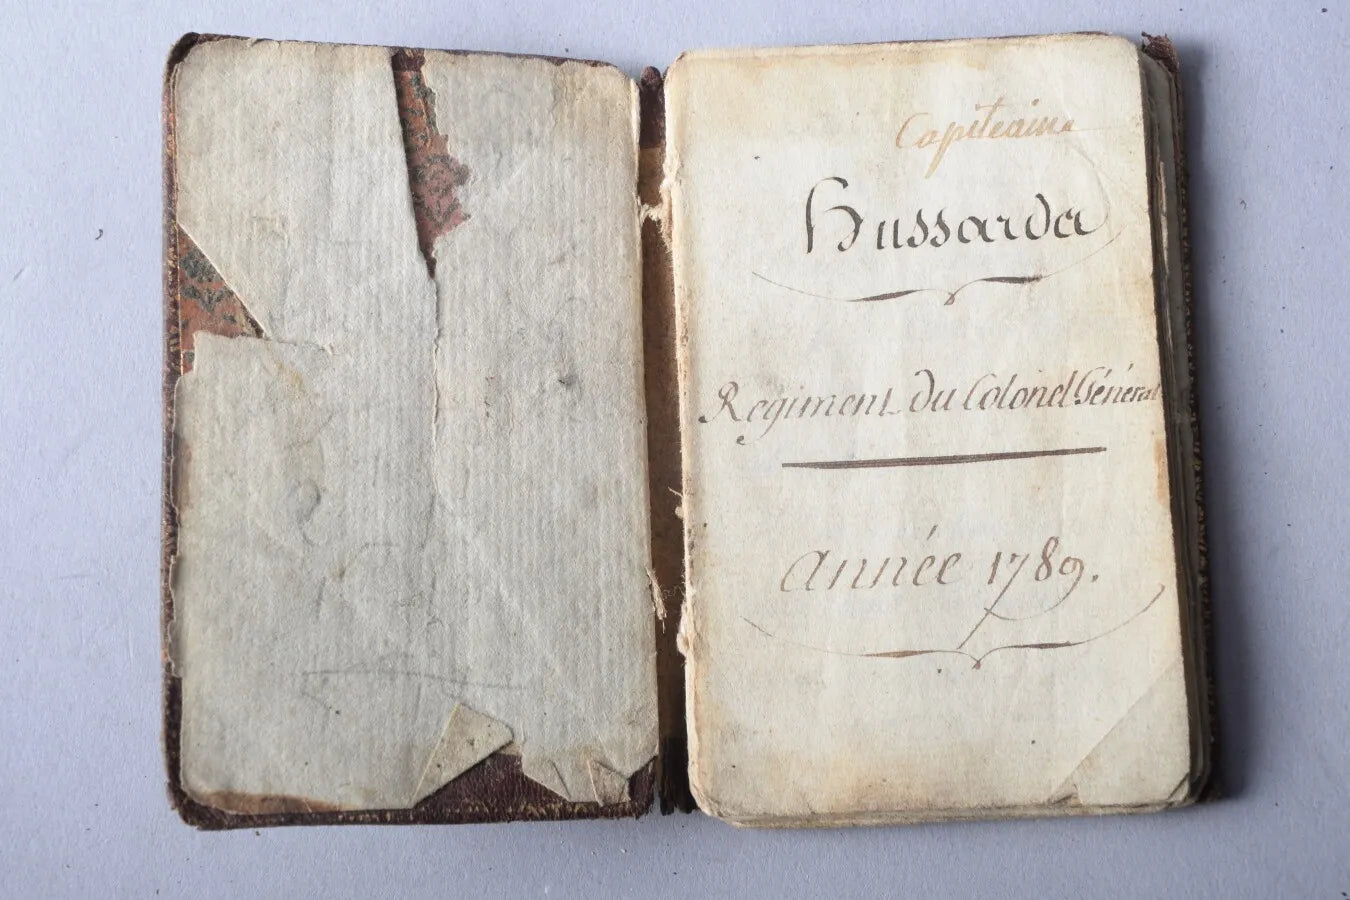 Capiteaine
Hussarda
Regiment du Colonel Général
Année 1789.